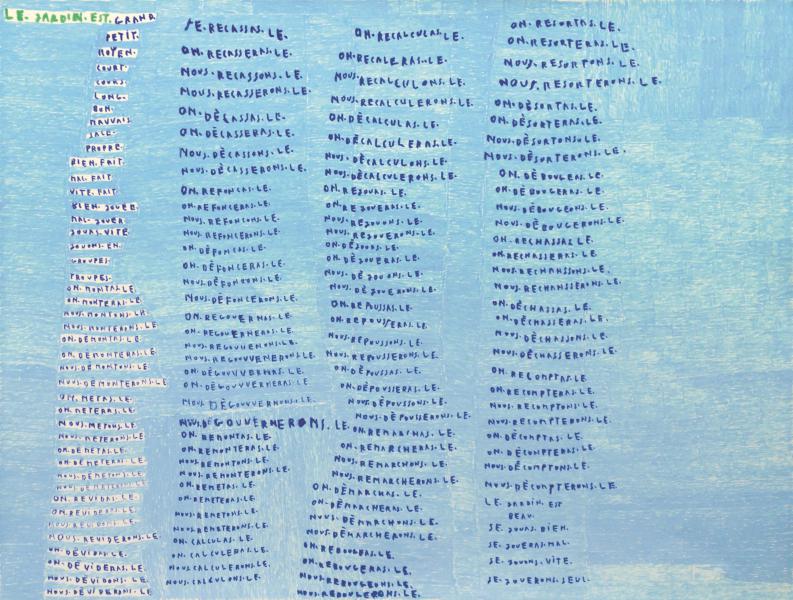 LE. JARDIN. EST. GRAND.
PETIT.
MOYEN.
COURT.
COURS.
LONG.
BON.
MAUVAIS.
SALE.
PROPRE.
BIEN. FAIT.
MAL. FAIT.
VITE. FAIT.
BIEN. JOUER.
MAL. JOUER.
JOUAS. VITE.
JOUONS. EN.
GROUPES.
TROUPES.
ON. MONTAS. LE.
ON. MONTERAS. LE.
NOUS. MONTONS. LE.
NOUS. MONTERONS. LE.
ON. DÈMONTAS. LE.
ON. DÈMONTERAS. LE.
NOUS. DÈMONTONS. LE.
NOUS. DÈMONTERONS. LE.
ON. METAS. LE.
ON. METERAS. LE.
NOUS. METONS. LE.
NOUS. METERONS. LE.
ON. DÈMETAS. LE.
ON. DÈMETERAS. LE.
NOUS. DÈMETONS. LE.
NOUS. DÈMETERONS. LE.
ON. REVIDAS. LE.
ON. REVIDERAS. LE.
NOUS. REVIDONS. LE.
NOUS. REVIDERONS. LE.
ON. DÈVIDAS. LE.
ON. DÈVIDERAS. LE.
NOUS. DÈVIDONS. LE.
NOUS. DÈVIDERONS. LE.
JE. RECASSAS. LE.
ON. RECASSERAS. LE.
NOUS. RECASSONS. LE.
NOUS. RECASSERONS. LE.
ON. DÈCASSAS. LE.
ON. DÈCASSERAS. LE.
NOUS. DÈCASSONS. LE.
NOUS. DÈCASSERONS. LE.
ON. REFONCAS. LE.
ON. REFONCERAS. LE.
NOUS. REFONCONS. LE.
NOUS. REFONCERONS. LE.
ON. DÈFONCAS. LE.
ON. DÈFONCERAS. LE.
NOUS. DÈFONCONS. LE.
NOUS. DÈFONCERONS. LE.
ON. REGOUVERNAS. LE.
ON. REGOUVERNERAS. LE.
NOUS. REGOUVERNONS. LE.
NOUS. REGOUVVENERONS. LE.
ON. DÈGOUVVERNAS. LE.
ON. DÈGOUVVERNERAS. LE.
NOUS. DÈGOUVVERNONS. LE.
NOUS. DÈGOUVVERNERONS. LE.
ON. REMONTAS. LE.
ON. REMONTERAS. LE.
NOUS. REMONTONS. LE.
NOUS. REMONTERONS. LE.
ON. REMETAS. LE.
ON. REMETERAS. LE.
NOUS. REMETONS. LE.
NOUS. REMETERONS. LE.
ON. CALCULAS. LE.
ON. CALCULERAS. LE.
NOUS. CALCULERONS. LE.
NOUS. CALCULONS. LE.
ON. RECALCULAS. LE.
ON. RECALCULERAS. LE.
NOUS. RECALCULONS. LE.
NOUS. RECALCULERONS. LE.
ON. DÈCALCULAS. LE.
ON. DÈCALCULERAS. LE.
NOUS. DÈCALCULONS. LE.
NOUS. DÈCALCULERONS. LE.
ON. REJOUAS. LE.
ON. REJOUERAS. LE.
NOUS. REJOUONS. LE.
NOUS. REJOUERONS. LE.
ON. DÈJOUAS. LE.
ON. DÈJOUERAS. LE.
NOUS. DÈJOUONS. LE.
NOUS. DÈJOUERONS. LE.
ON. REPOUSSAS. LE.
ON. REPOUSSERAS. LE.
NOUS. REPOUSSONS. LE.
NOUS. REPOUSSERONS. LE.
ON. DÈPOUSSAS. LE.
ON. DÈPOUSSERAS. LE.
NOUS. DÈPOUSSONS. LE.
NOUS. DÈPOUSSERONS. LE.
ON. REMARCHAS. LE.
ON. REMARCHERAS. LE.
NOUS. REMARCHONS. LE.
NOUS. REMARCHERONS. LE.
ON. DÈMARCHAS. LE.
ON. DÈMARCHERAS. LE.
NOUS. DÈMARCHONS. LE.
NOUS. DÈMARCHERONS. LE.
ON. REBOUGEAS. LE.
ON. REBOUGERAS. LE.
NOUS. REBOUGEONS. LE.
NOUS. REBOUGERONS. LE.
ON. RESORTAS. LE.
ON. RESORTERAS. LE.
NOUS. RESORTONS. LE.
NOUS. RESORTERONS. LE.
ON. DÈSORTAS. LE.
ON. DÈSORTERAS. LE.
NOUS. DÈSORTONS. LE.
NOUS. DÈSORTERONS. LE.
ON. DÈBOUGEAS. LE.
ON. DÈBOUGERAS. LE.
NOUS. DÈBOUGEONS. LE.
NOUS. DÈBOUGERONS. LE.
ON. RECHASSAS. LE.
ON. RECHASSERAS. LE.
NOUS. RECHANSSONS. LE.
NOUS. RECHANSSERONS. LE.
ON. DÈCHASSAS. LE.
ON. DÈCHASSERAS. LE.
NOUS. DÈCHASSONS. LE.
NOUS. DÈCHASSERONS. LE.
ON. RECOMPTAS. LE.
ON. RECOMPTERAS. LE.
NOUS. RECOMPTONS. LE.
NOUS. RECOMPTERONS. LE.
ON. DÈCOMPTAS. LE.
ON. DÈCOMPTERAS. LE.
NOUS. DÈCOMPTONS. LE.
NOUS. DÈCOMPTERONS. LE.
LE. JARDIN. EST
BEAU.
JE. JOUAS. BIEN.
JE. JOUERAS. MAL.
JE. JOUONS. VITE.
JE. JOUERONS. SEUL.